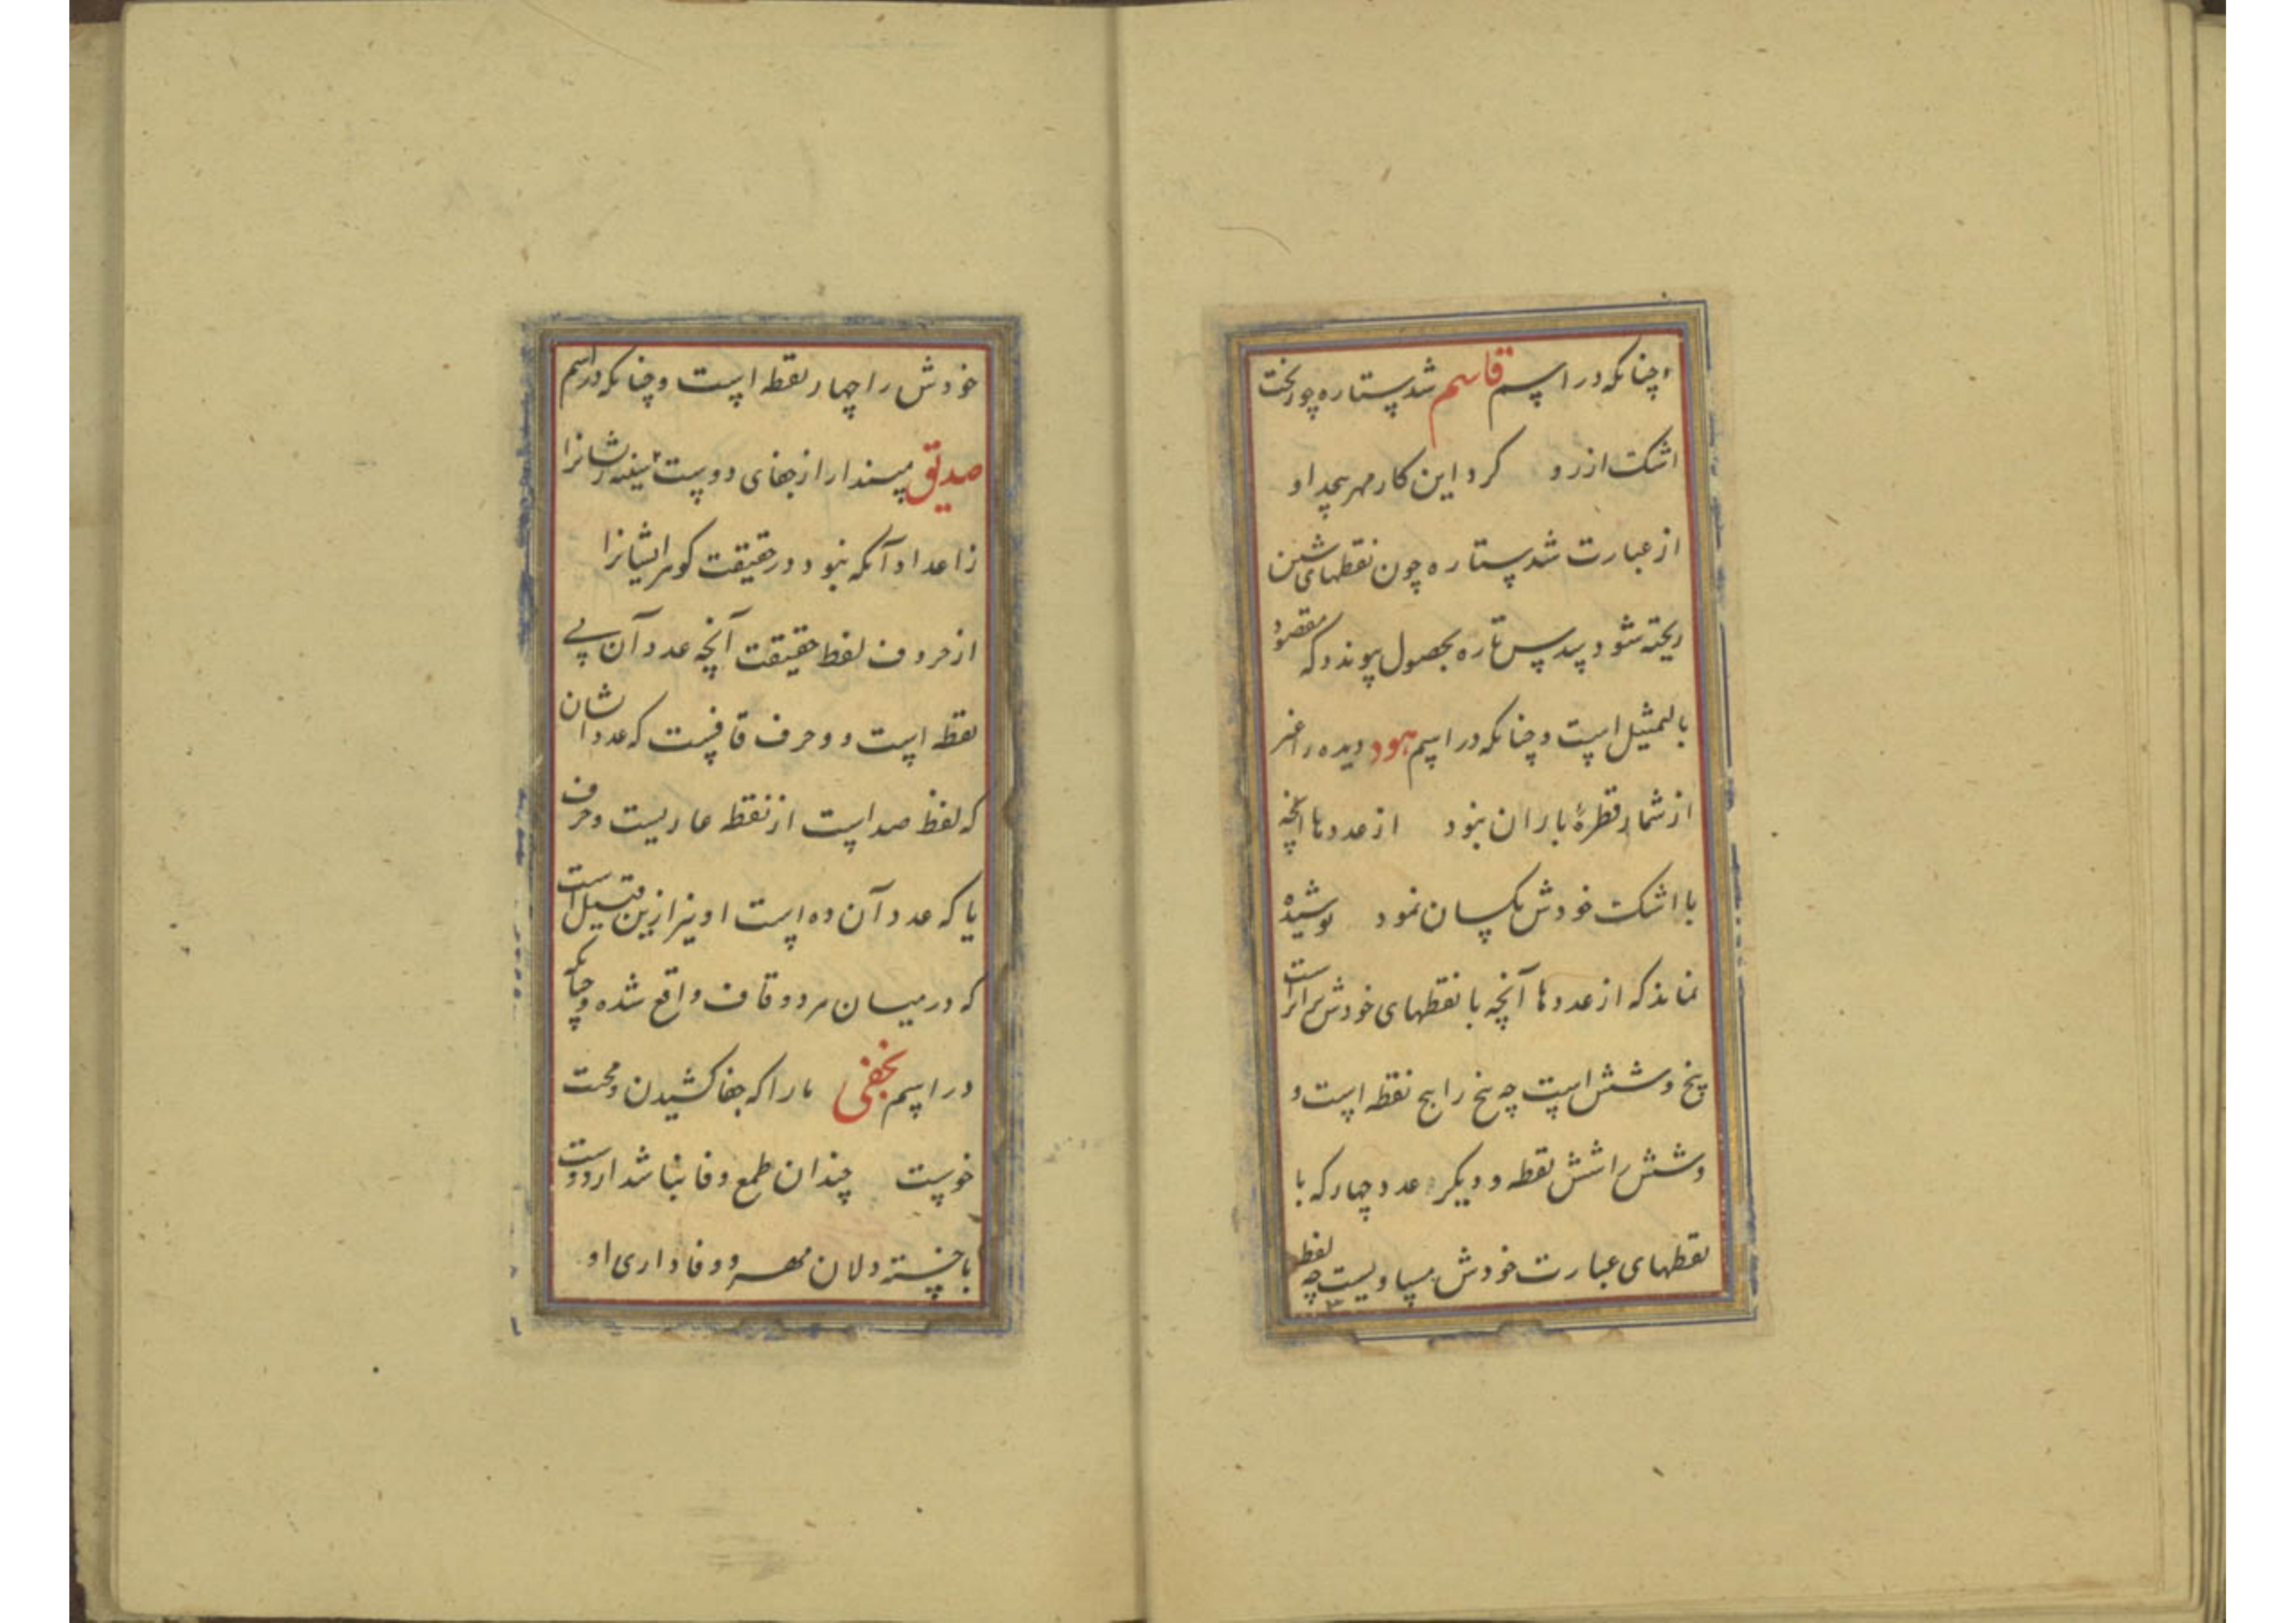 و چنانکه در اسم قاسم شد ستاره چو ریخت
اشک از رو کرد این کار مهر بیحد او
از عبارت شد ستاره چون نقطهای شین
ریخته شود پد س تاره بحصول پیوندد که مقصود
بالتمثیل است و چنانکه در اسم هود دیده را غیر
از شمار قطرهٔ باران نبود از عددها آنچه
با اشک خودش یکسان نمود پوشیده
نماند که از عددها آنچه با نقطهای خودش برابرست
پنج و شش است چه پنج را پنج نقطه است و
و شش را شش نقطه و دیگر عدد چهار که با
نقطهای عبارت خودش مساویست چه لفظ
خودش را چهار نقطه است و چنانکه در اسم
صدیق مپندار از جفای دوست سینه ریشانرا
ز اعداد آنکه نبود در حقیقت کو مر ایشانرا
از حروف لفظ حقیقت آنچه عدد آن بی
نقطه است دو حرف قافست که عددشان
که لفظ صد است از نقطه عاریست و حرف
یا که عدد آن ده است او نیز ازین قبیل است
که در میان هر دو قاف واقع شده و چنانکه
در اسم نجفی ما را که جفا کشیدن و محنت
خوست چندان طمع وفا نباشد از دوست
با خسته دلان مهر و وفاداری او